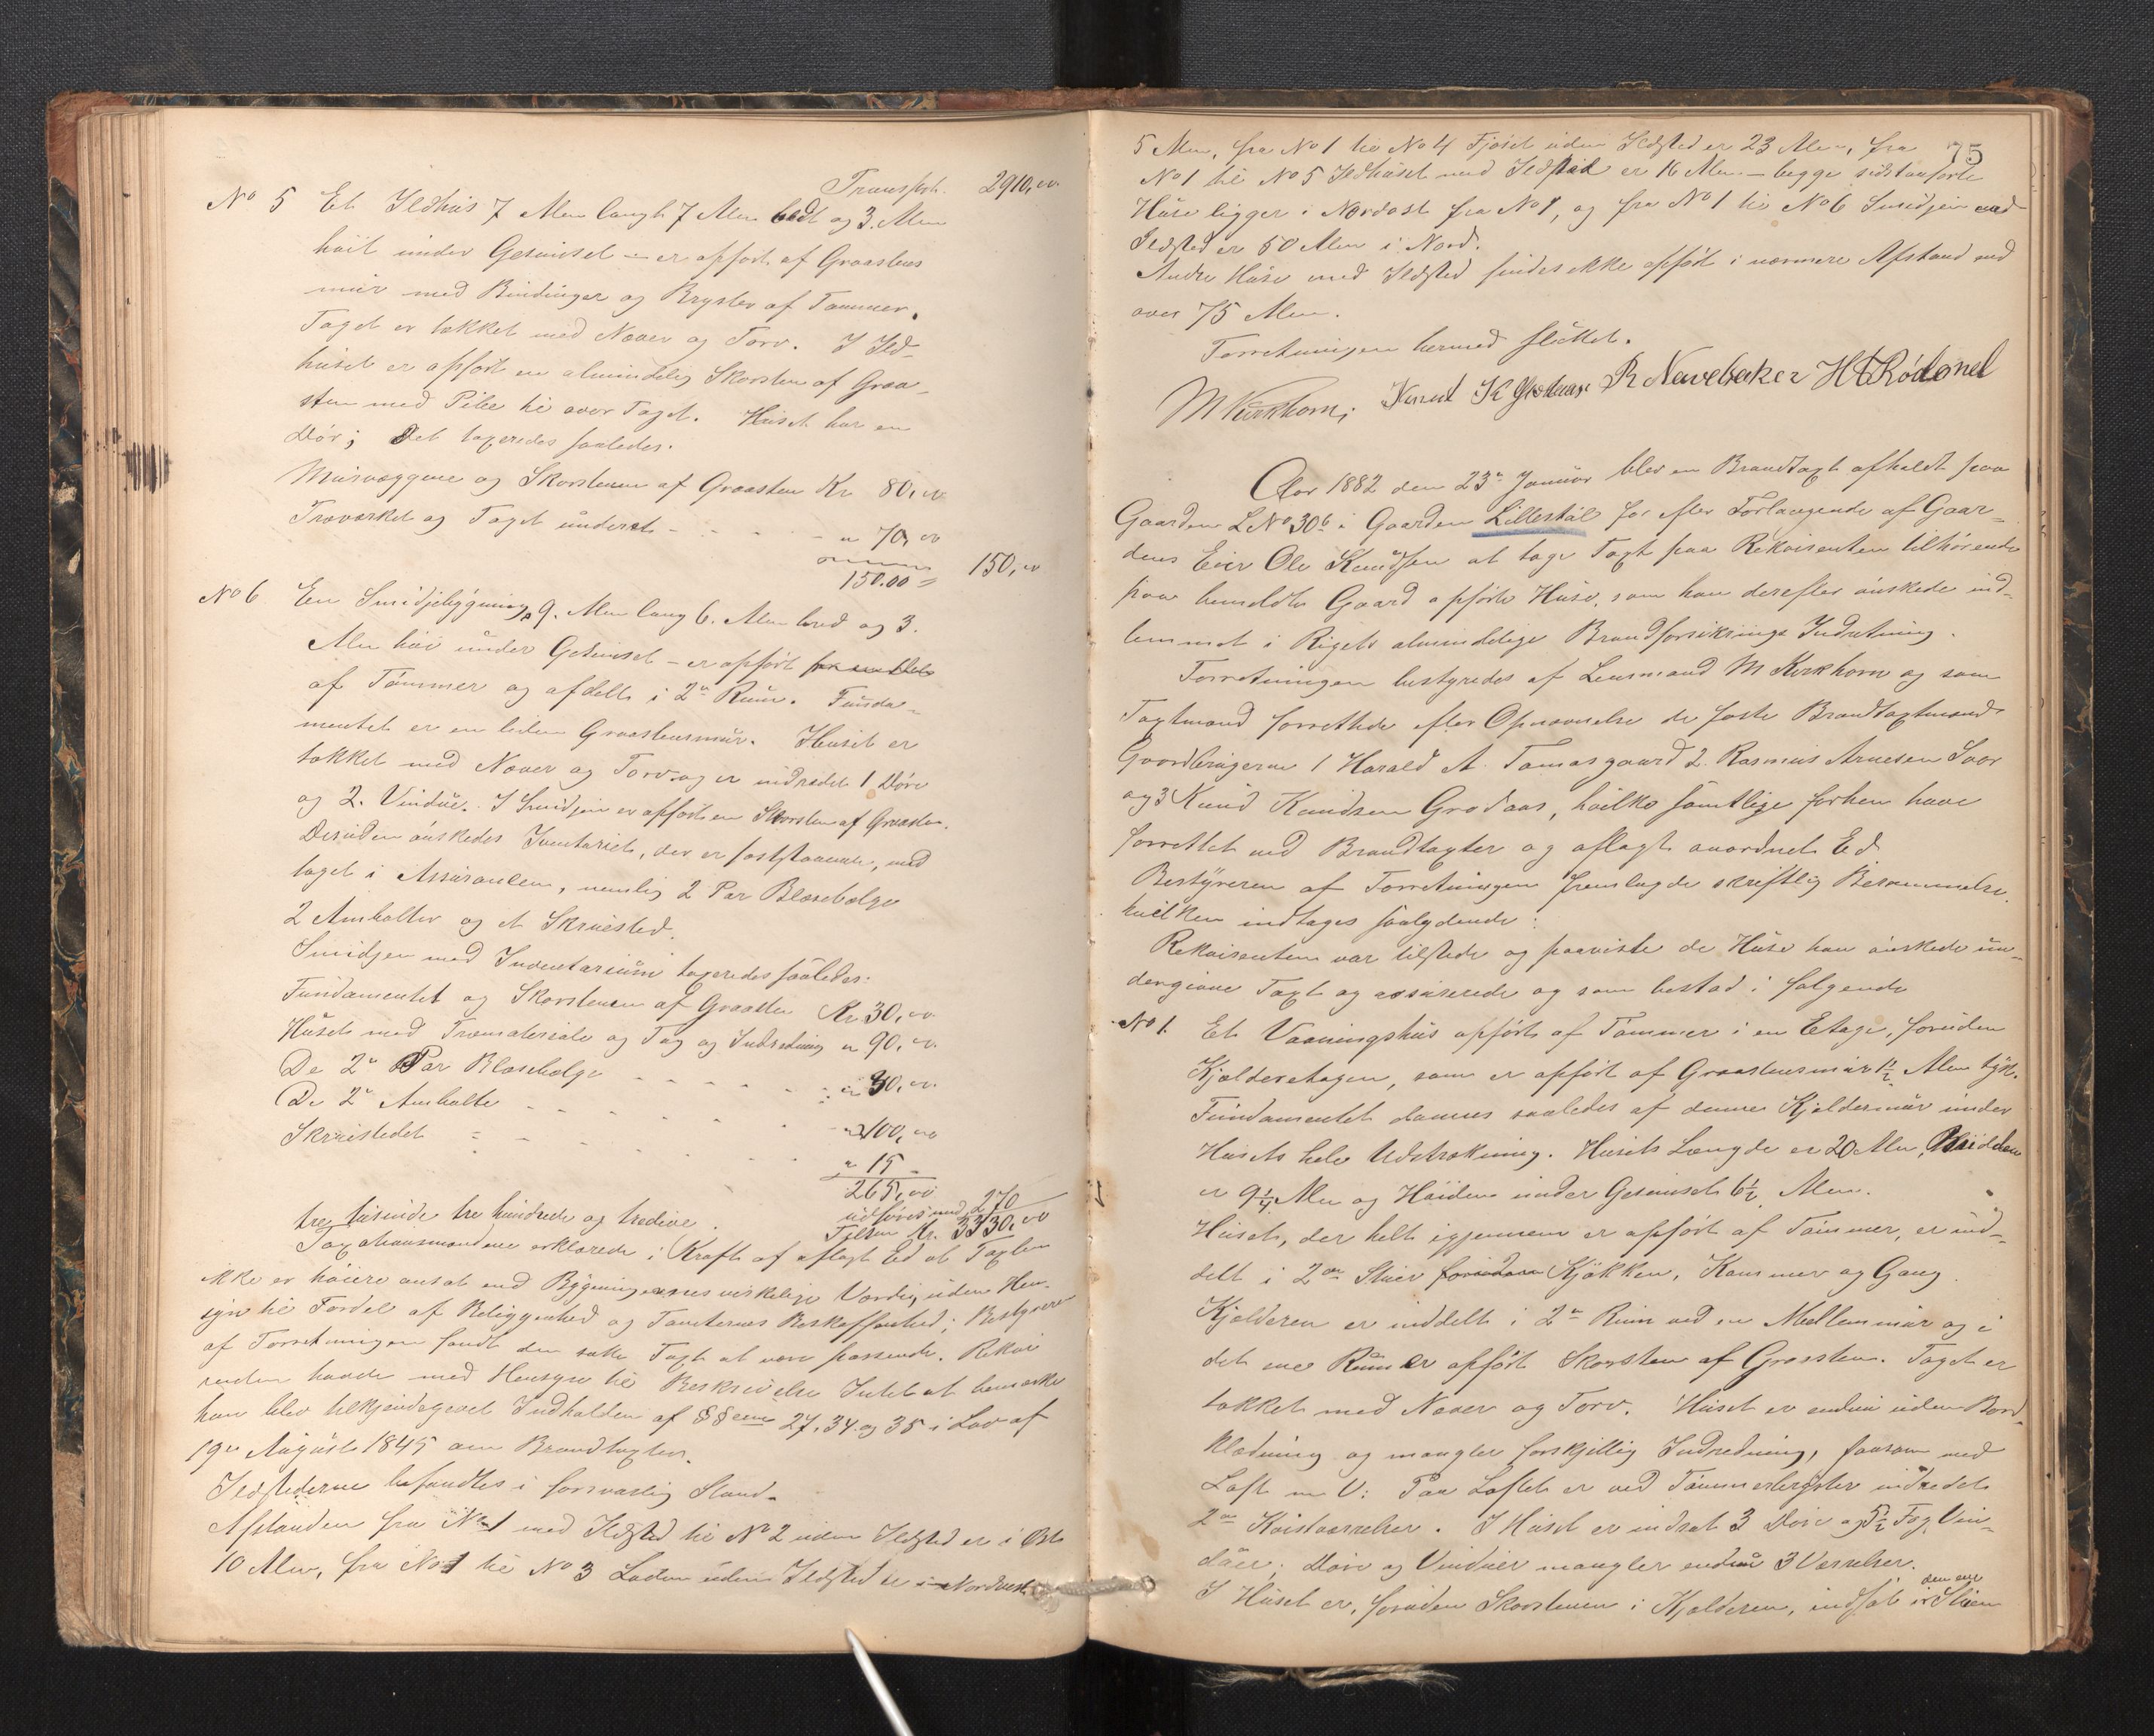 Transport. 2910,00
No 5 Et Ildhus 7 Alen langt 7 Alen bredt og 3. Alen
höit under Gesimset – er opfört af Graastens
muir med Bindinger og Bryster af Tømmer.
Taget er tækket med Næver og Torv. I Ild-
huset er opfört en almindelig Skorsten af Graa-
sten med Pibe til over Taget. Huset har en
Dör; Det taxeredes saaledes.
Muirvæggene og Skorstenen af Graasten Kr 80,00
Træværket og Taget underet - - - - " 70,00
150.00 = 150,00
No 6 En Smidjebygning, 9. Alen lang 6. Alen bred og 3.
Alen höi under Gesimset – er opfört
af Tømmer og afdelt i 2de Rum. Funda-
mentet er en liden Graastensmuir. Huset er
tækket med Næver og Torv og er indredet 1 Döre
og 2. Vindue. I Smidjen er opfört en Skorsten af Graasten.
Desuden önskedes Inventariet, der er fastстaaende, med
taget i Assurancen, nemlig 2 Par Blæsebælge
2 Ambolter og et Skruested.
Smidjen med Inventarium taxeredes saaledes:
Fundamentet og Skorstenen af Graasten Kr 30,00
Huset med Træmateriale og Tag og Indredning " 90,00
De 2de Par Blæsebælge - - - - - " 30,00
De 2de Ambolte - - - - - " 100,00
Skruestedet - - - - - " 15 -
265,00
udføres med 270
tre tusinde tre hundrede og tredive. Tilsam Kr. 3330,00
Taxationsmændene erklærede i Kraft af aflagt Ed at Taxten
ikke er höiere ansat end Bygningernes virkelige Værdi, uden Hen-
syn til Fordel af Beliggenhed og Tomternes Beskaffenhed; Bestyreren
af Forretningen fandt den satte Taxt at være passende. Rekvi
renten havde med Hensyn til Beskrivelse Intet at bemærke
han blev tilkjendegivet Indholden af §§erne 27, 34 og 35 i Lov af
19de August 1845 om Brandtaxter.
Ildstederne befandtes i forsvarlig Stand.
Afstanden fra No 1 med Ildsted til No 2 uden Ildsted er i Øst
10 Alen, fra No 1 til No 3 Laden uden Ildsted er i Nordvest
75
5 Alen, fra No 1 til No 4 Fjöset uden Ildsted er 23 Alen, fra
No 1 til No 5 Ildhuset med Ildsted er 16 Alen – begge sidstanførte
Huse ligger i Nordost fra No 1, og fra No 1 til No 6 Smidjen med
Ildsted er 50 Alen i Nord.
Andre Huse med Ildsted findes ikke opfört i nærmere Afstand end
over 75 Alen.
Forretningen hermed sluttet.
M Kirkhorn; Knud K Grodaas R Navebaker H
Aar 1882 den 23de Januar blev en Brandtaxt afholdt paa
Gaarden LNo 30b i Gaarden Lillestöl for efter Forlangende af Gaar-
dens Eier Ole Knudsen at tage Taxt paa Rekvirenten tilhørende
paa bemeldte Gaard opførte Huse, som han derefter önskede ind-
lemmet i Rigets almindelige Brandforsikrings Indretning.
Forretningen bestyredes af Lensmand M Kirkhorn og som
Taxtmænd forrettede efter Opnævnelse de faste Brandtaxtmænd
Gaardbrugerne 1 Harald A. Tomasgaard 2. Rasmus Arnesen Svor
og 3 Knud Knudsen Grodaas, hvilke samtlige forhen have
forrettet ved Brandtaxter og aflagt anordnet Ed.
Bestyreren af Forretningen fremlagde skriftlig Berammelse.
hvilken indtages saalydende:
Rekvirenten var tilstede og paaviste de Huse han önskede un-
dergivne Taxt og assurerede og som bestod i følgende
No 1. Et Vaaningshus opfört af Tømmer i en Etage, foruden
Kjælderetagen, som er opfört af Graastensmuir 1½ Alen tyk.
Fundamentet dannes saaledes af denne Kjældermuir under
Husets hele Udstrækning. Husets Længde er 20 Alen, Bredden
er 9¼ Alen og Höiden under Gesimset 6½ Alen.
Huset, der helt igjennem er opfört af Tømmer, er ind-
delt i 2de Stuer foruden Kjökken, Kammer og Gang.
Kjælderen er inddelt i 2de Rum ved en Mellemmuir og i
det ene Rum er opfört Skorsten af Graasten. Taget er
tækket med Næver og Torv. Huset er endnu uden Bord-
klædning og mangler forskjellig Indredning, saasom ned
Loft m V: Paa Loftet er ved Tömmerbryster indredet
2de Kvistværelser. I Huset er indsat 3 Döre og 5½ Fag Vin-
duer; Döre og Vinduer mangler endnu 3 Værelser.
I Huset er, foruden Skorstenen i Kjælderen, indsat i den ene Stuen